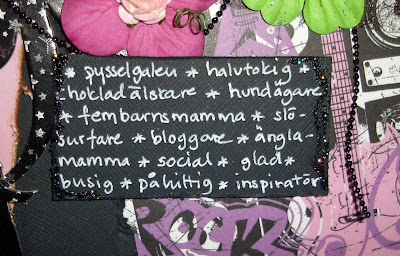 * pysselgalen * halvtokig *
chokladälskare * hundägare
* fembarnsmamma * slö-
surfare * bloggare * ängla-
mamma * social * glad *
busig * påhittig * inspiratör
ROCK